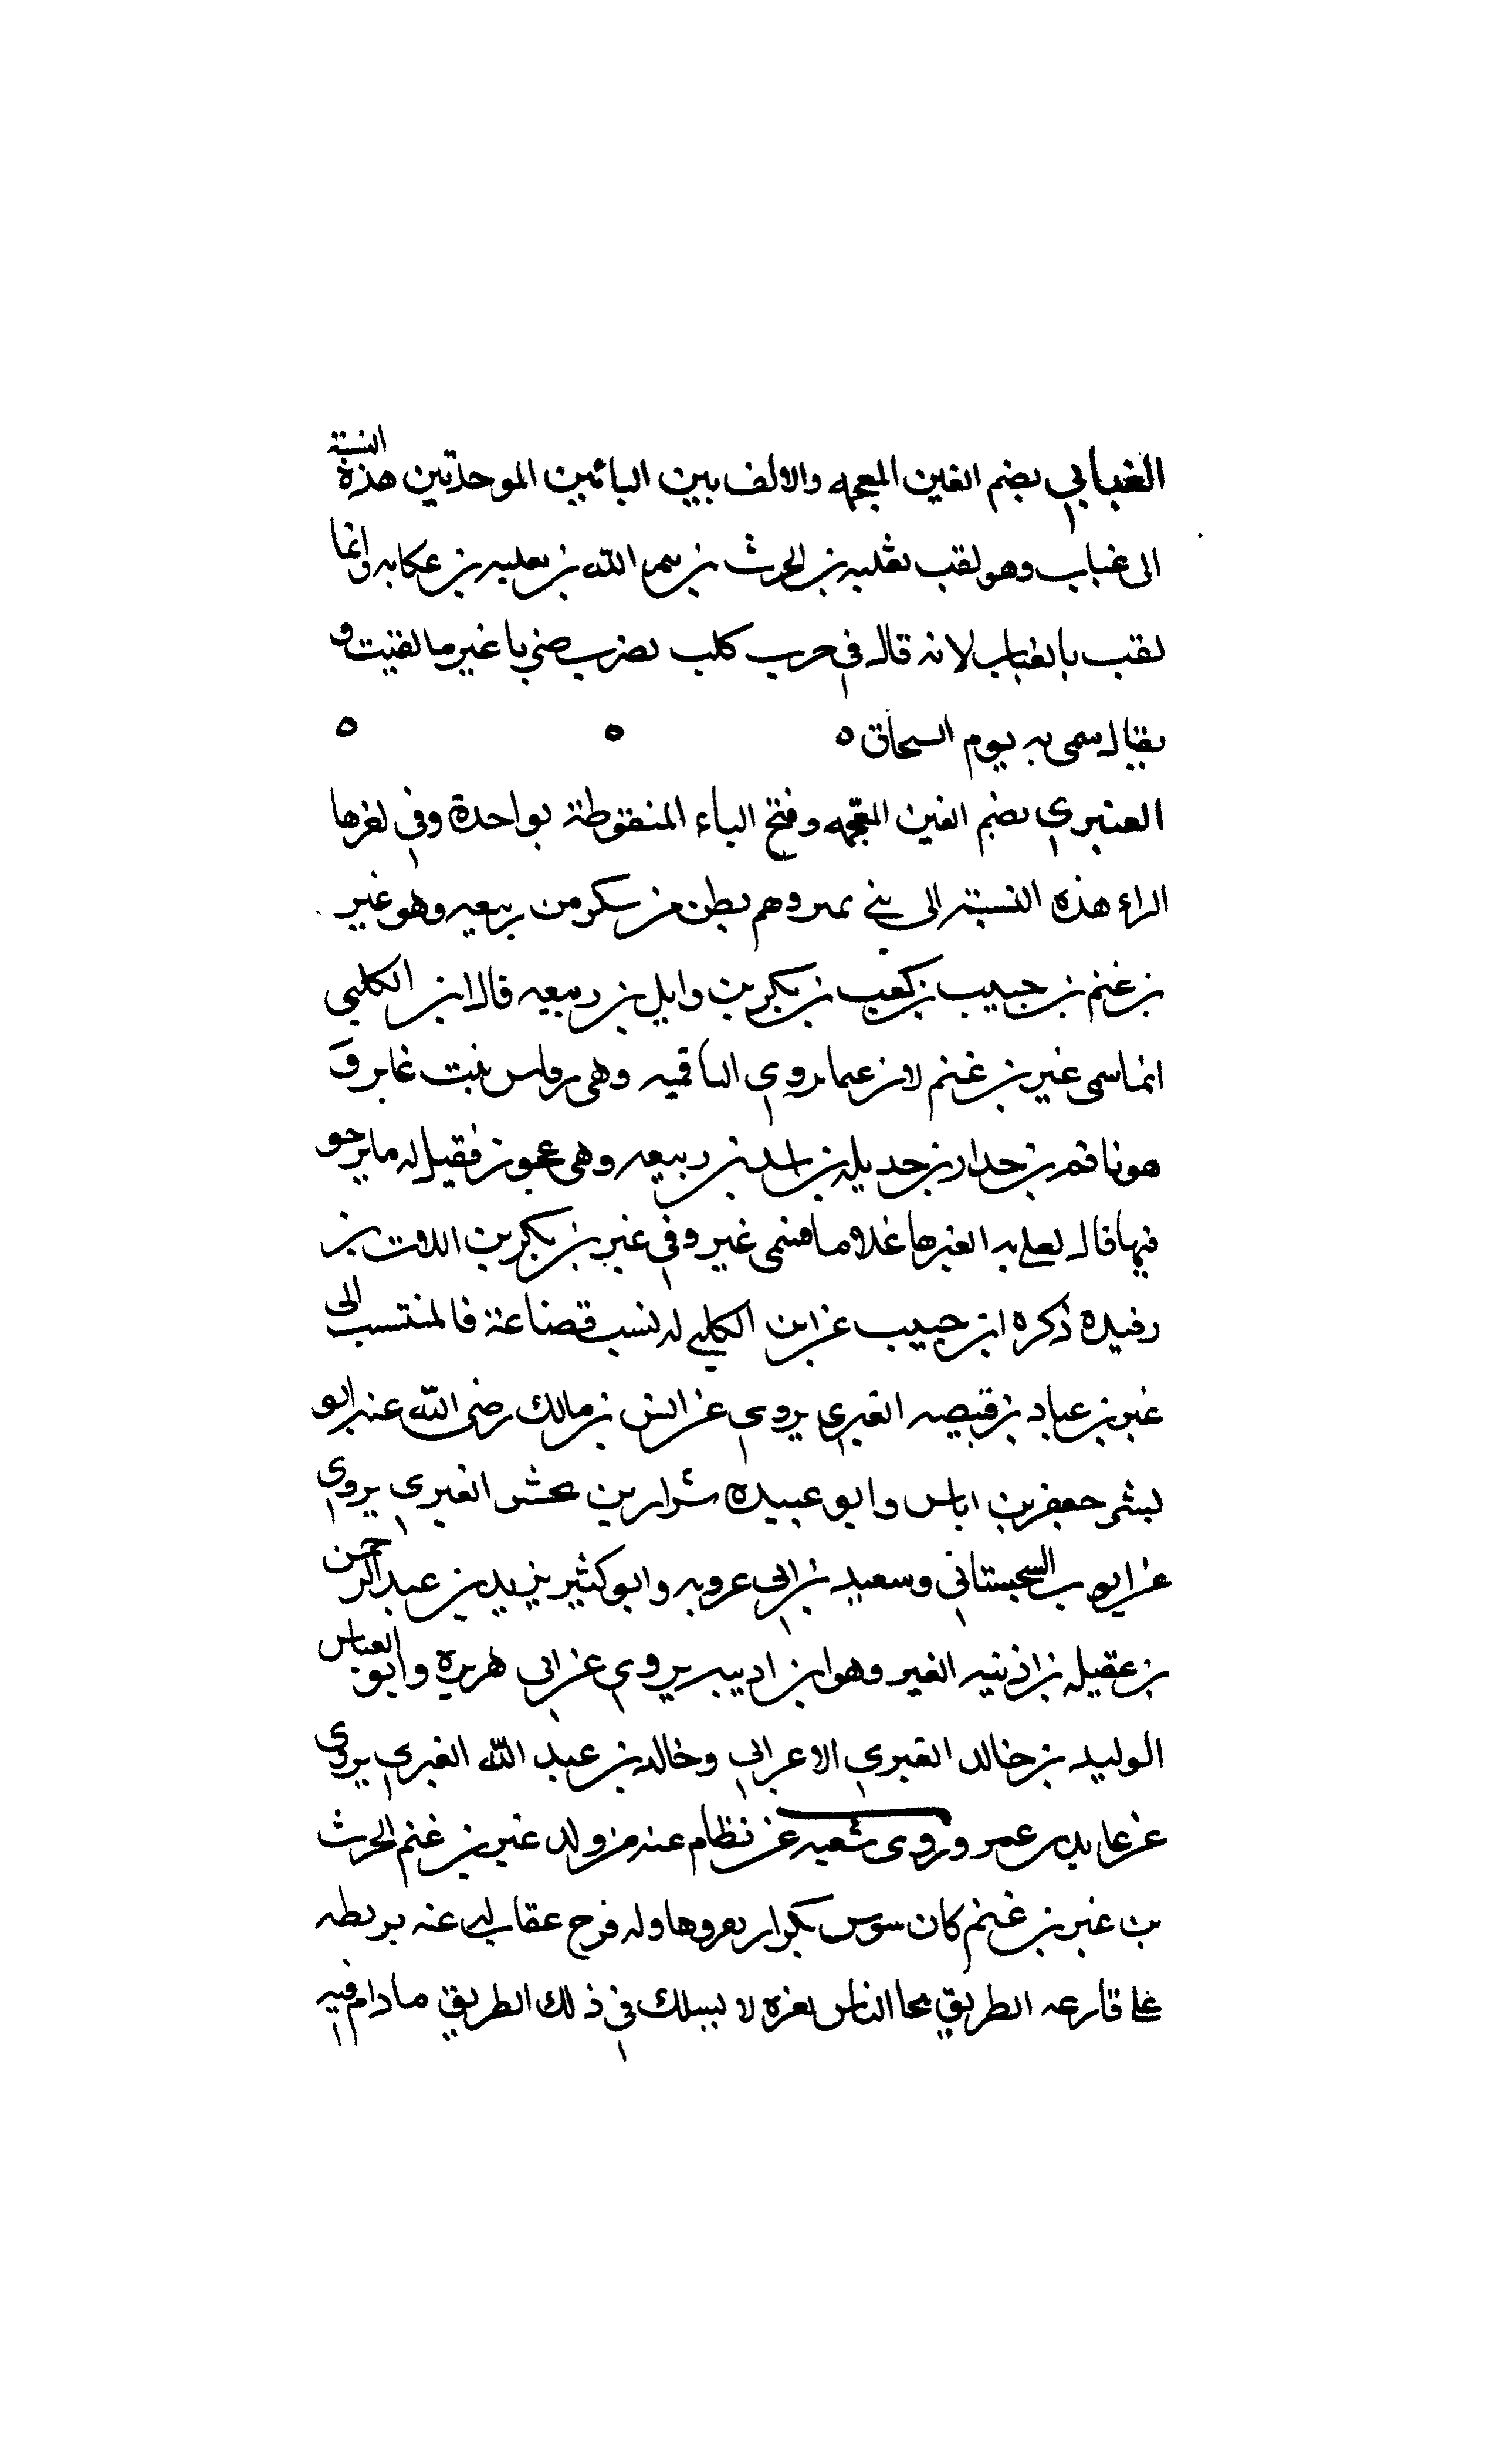 الغبابي بضم الغين المعجمه والالف بين البائين الموحدتين هذه النسبة
الى غباب وهو لقب ثعلبه بن الحرث بن تيم الله بن ثعلبه بن عكابه وانما
لقب بالغباب لانه قال في حرب كلب بضرب ضربا غير ما لفتيت و
يقال سمى به يوم السحاق ه ه ه
العنبري بضم الغين المعجمه وفتح الباء المنقوطة بواحدة وفي لغرها
الراء هذه النسبة الى بني وهم بطن من يسكر من ربيعه وهو غبر
بن غنم بن حبيب بن كعب بن بكر بن وايل بن ربيعه قال ابن الكلبي
انما سمى غبر بن غنم لان الناقميه وهى بنت عامر و
هو ناقم بن حدار بن جديله بن اسد بن ربيعه وهى عجوز فقيل له ما يرجو
فيها قال لعلي اتغبرها غلاما فسمى غبر وفي غبر بن بكر بن اللات بن
رفيده ذكره ابن حبيب عن ابن الكلبي له نسب قضاعة فالمنتسب الى
غبر بن عباد بن قبيصه الغبري يروى عن انس بن مالك رضى الله عنه ابو
بشر جعفر بن اياس وابو عبيده شرار بن محشر الغبرى يروى
عن ايوب السجستاني وسعيد بن ابى عروبه وابو كثير يزيد بن عبد الرحمن
بن عقيله بن اذنيه الغبر وهو ابن اديبر يروى عن ابى هريره وابو العباس
الوليد بن خالد الغبرى الاعرابى وخالد بن عبد الله الغبرى يروى
عن عايد بن عمر وروى شعبه عن نظام عنه من ولد غبر بن غنم الحرث
بن غبر بن غنم كان وله فرح عقاب عنه يربطه
على قارعه الطريق الناس لا يسلك في ذلك الطريق ما دام فيه